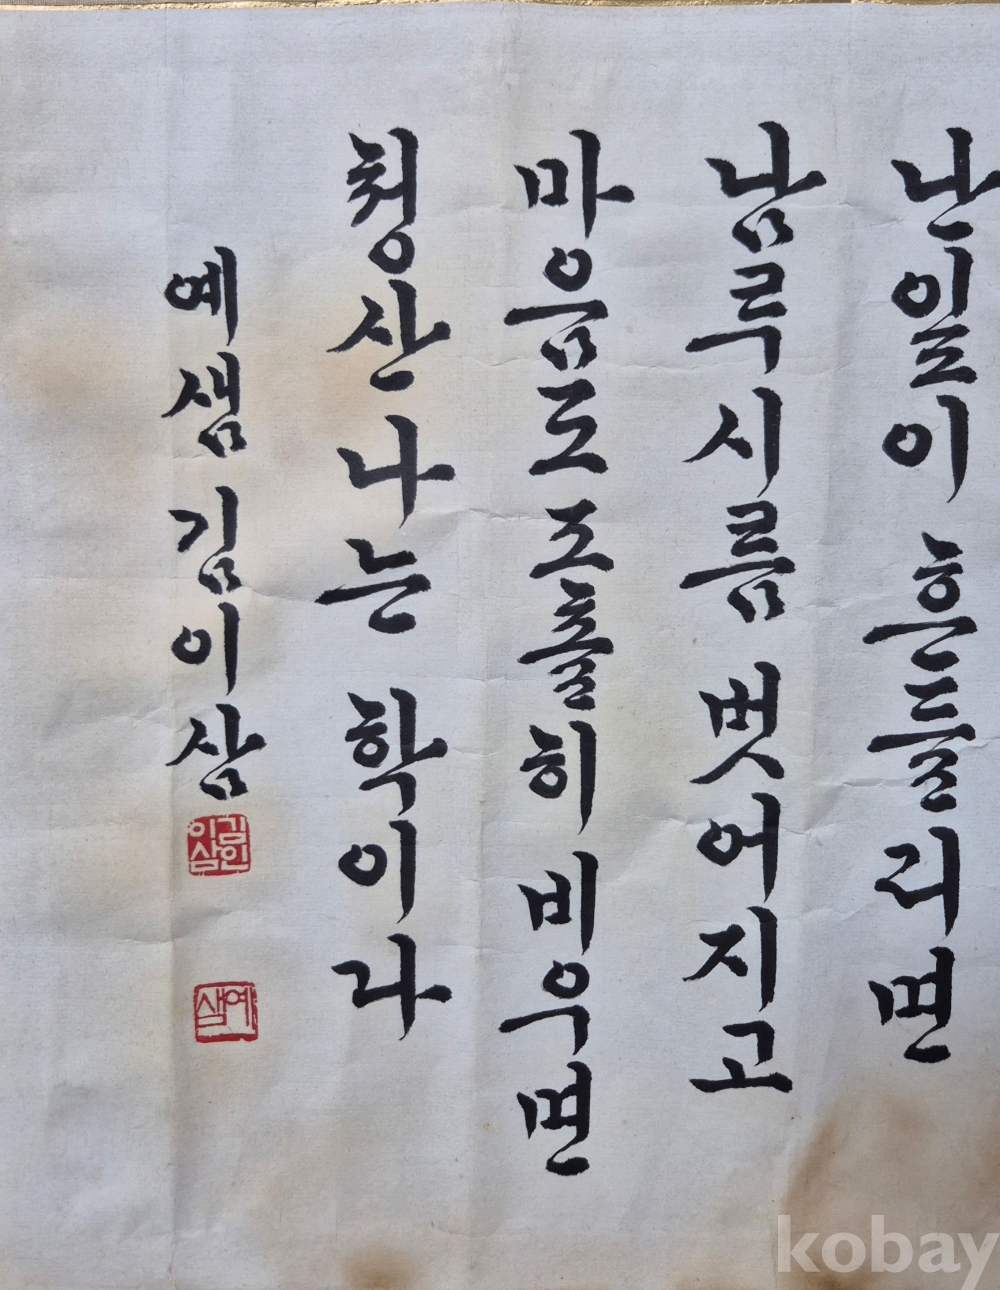 난일이 흔들리면
남루시름 벗어지고
마음도조촐히 비우면
청산나는 학이라
예샘 김이삼
김인이삼
예샘
kobay